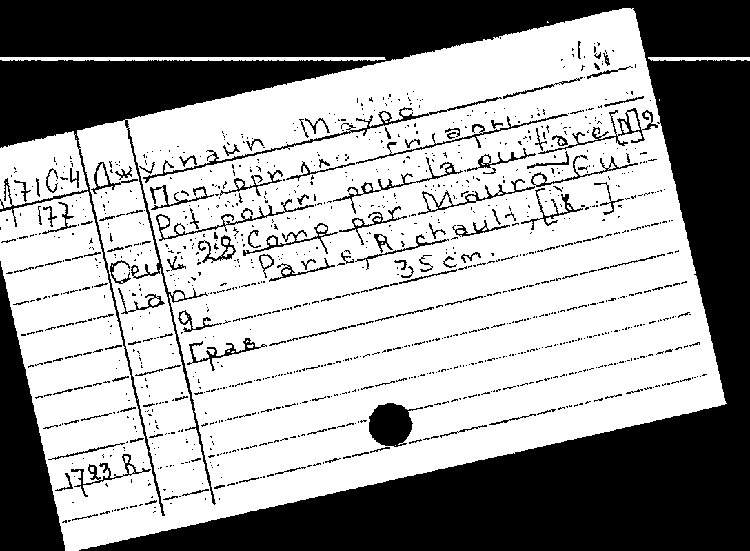 М710-4 Джулиани Мауро
177 Попурри для гитары
Pot pourri pour la guitare [N] 2
Oeuv. 28. Comp par Mauro Giu-
liani. - Paris, Richault, [18. ].
9 с 35 cm.
Грав.
1723. R.